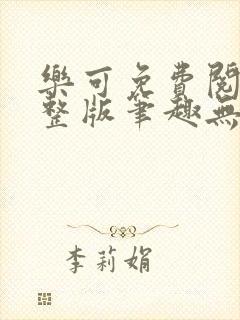 樂可免費閱
整版筆趣無
李莉娟